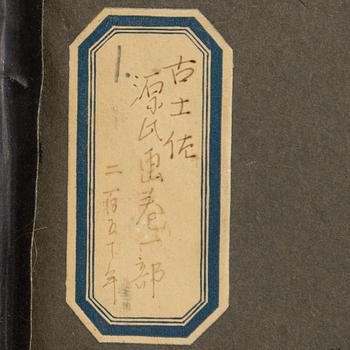 1.
古土佐
源氏画巻一部
二百五十年